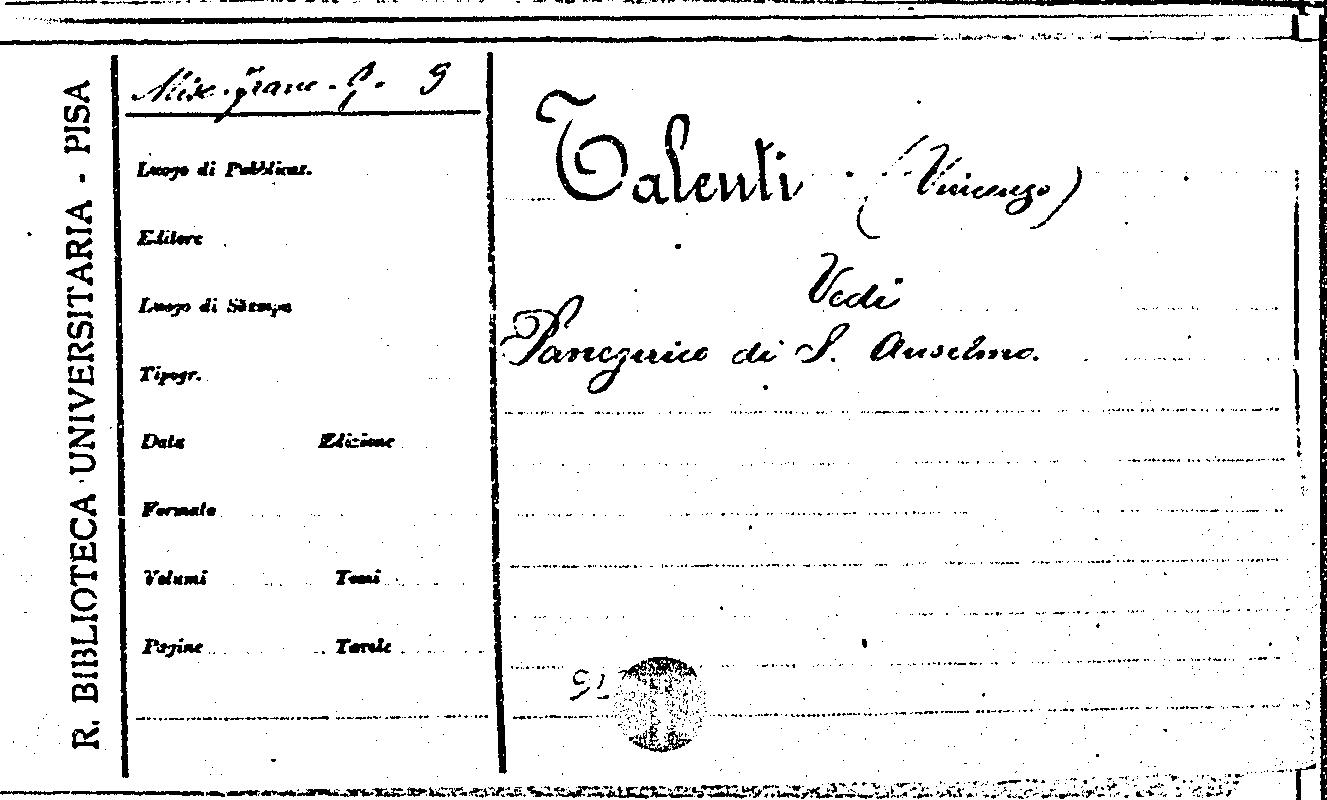 R. BIBLIOTECA UNIVERSITARIA - PISA
Luogo di Pubblicaz.
Editore
Luogo di Stampa
Tipogr.
Data Edizione
Formato
Volumi Tomi
Pagine Tavole
Talenti (Vincenzo)
Vedi
Panegirico di S. Anselmo.